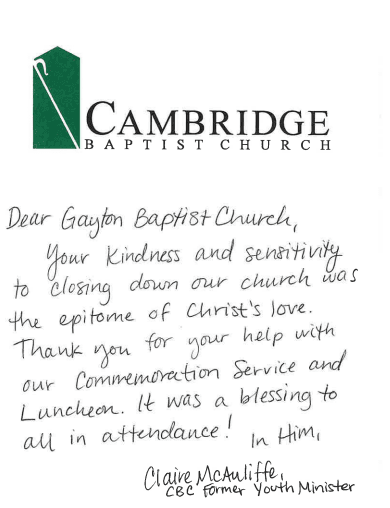 CAMBRIDGE
BAPTIST CHURCH
Dear Gayton Baptist Church,
Your kindness and sensitivity
to closing down our church was
the epitome of Christ's love.
Thank you for your help with
our Commemoration Service and
Luncheon. It was a blessing to
all in attendance! In Him,
Claire McAuliffe,
CBC Former Youth Minister